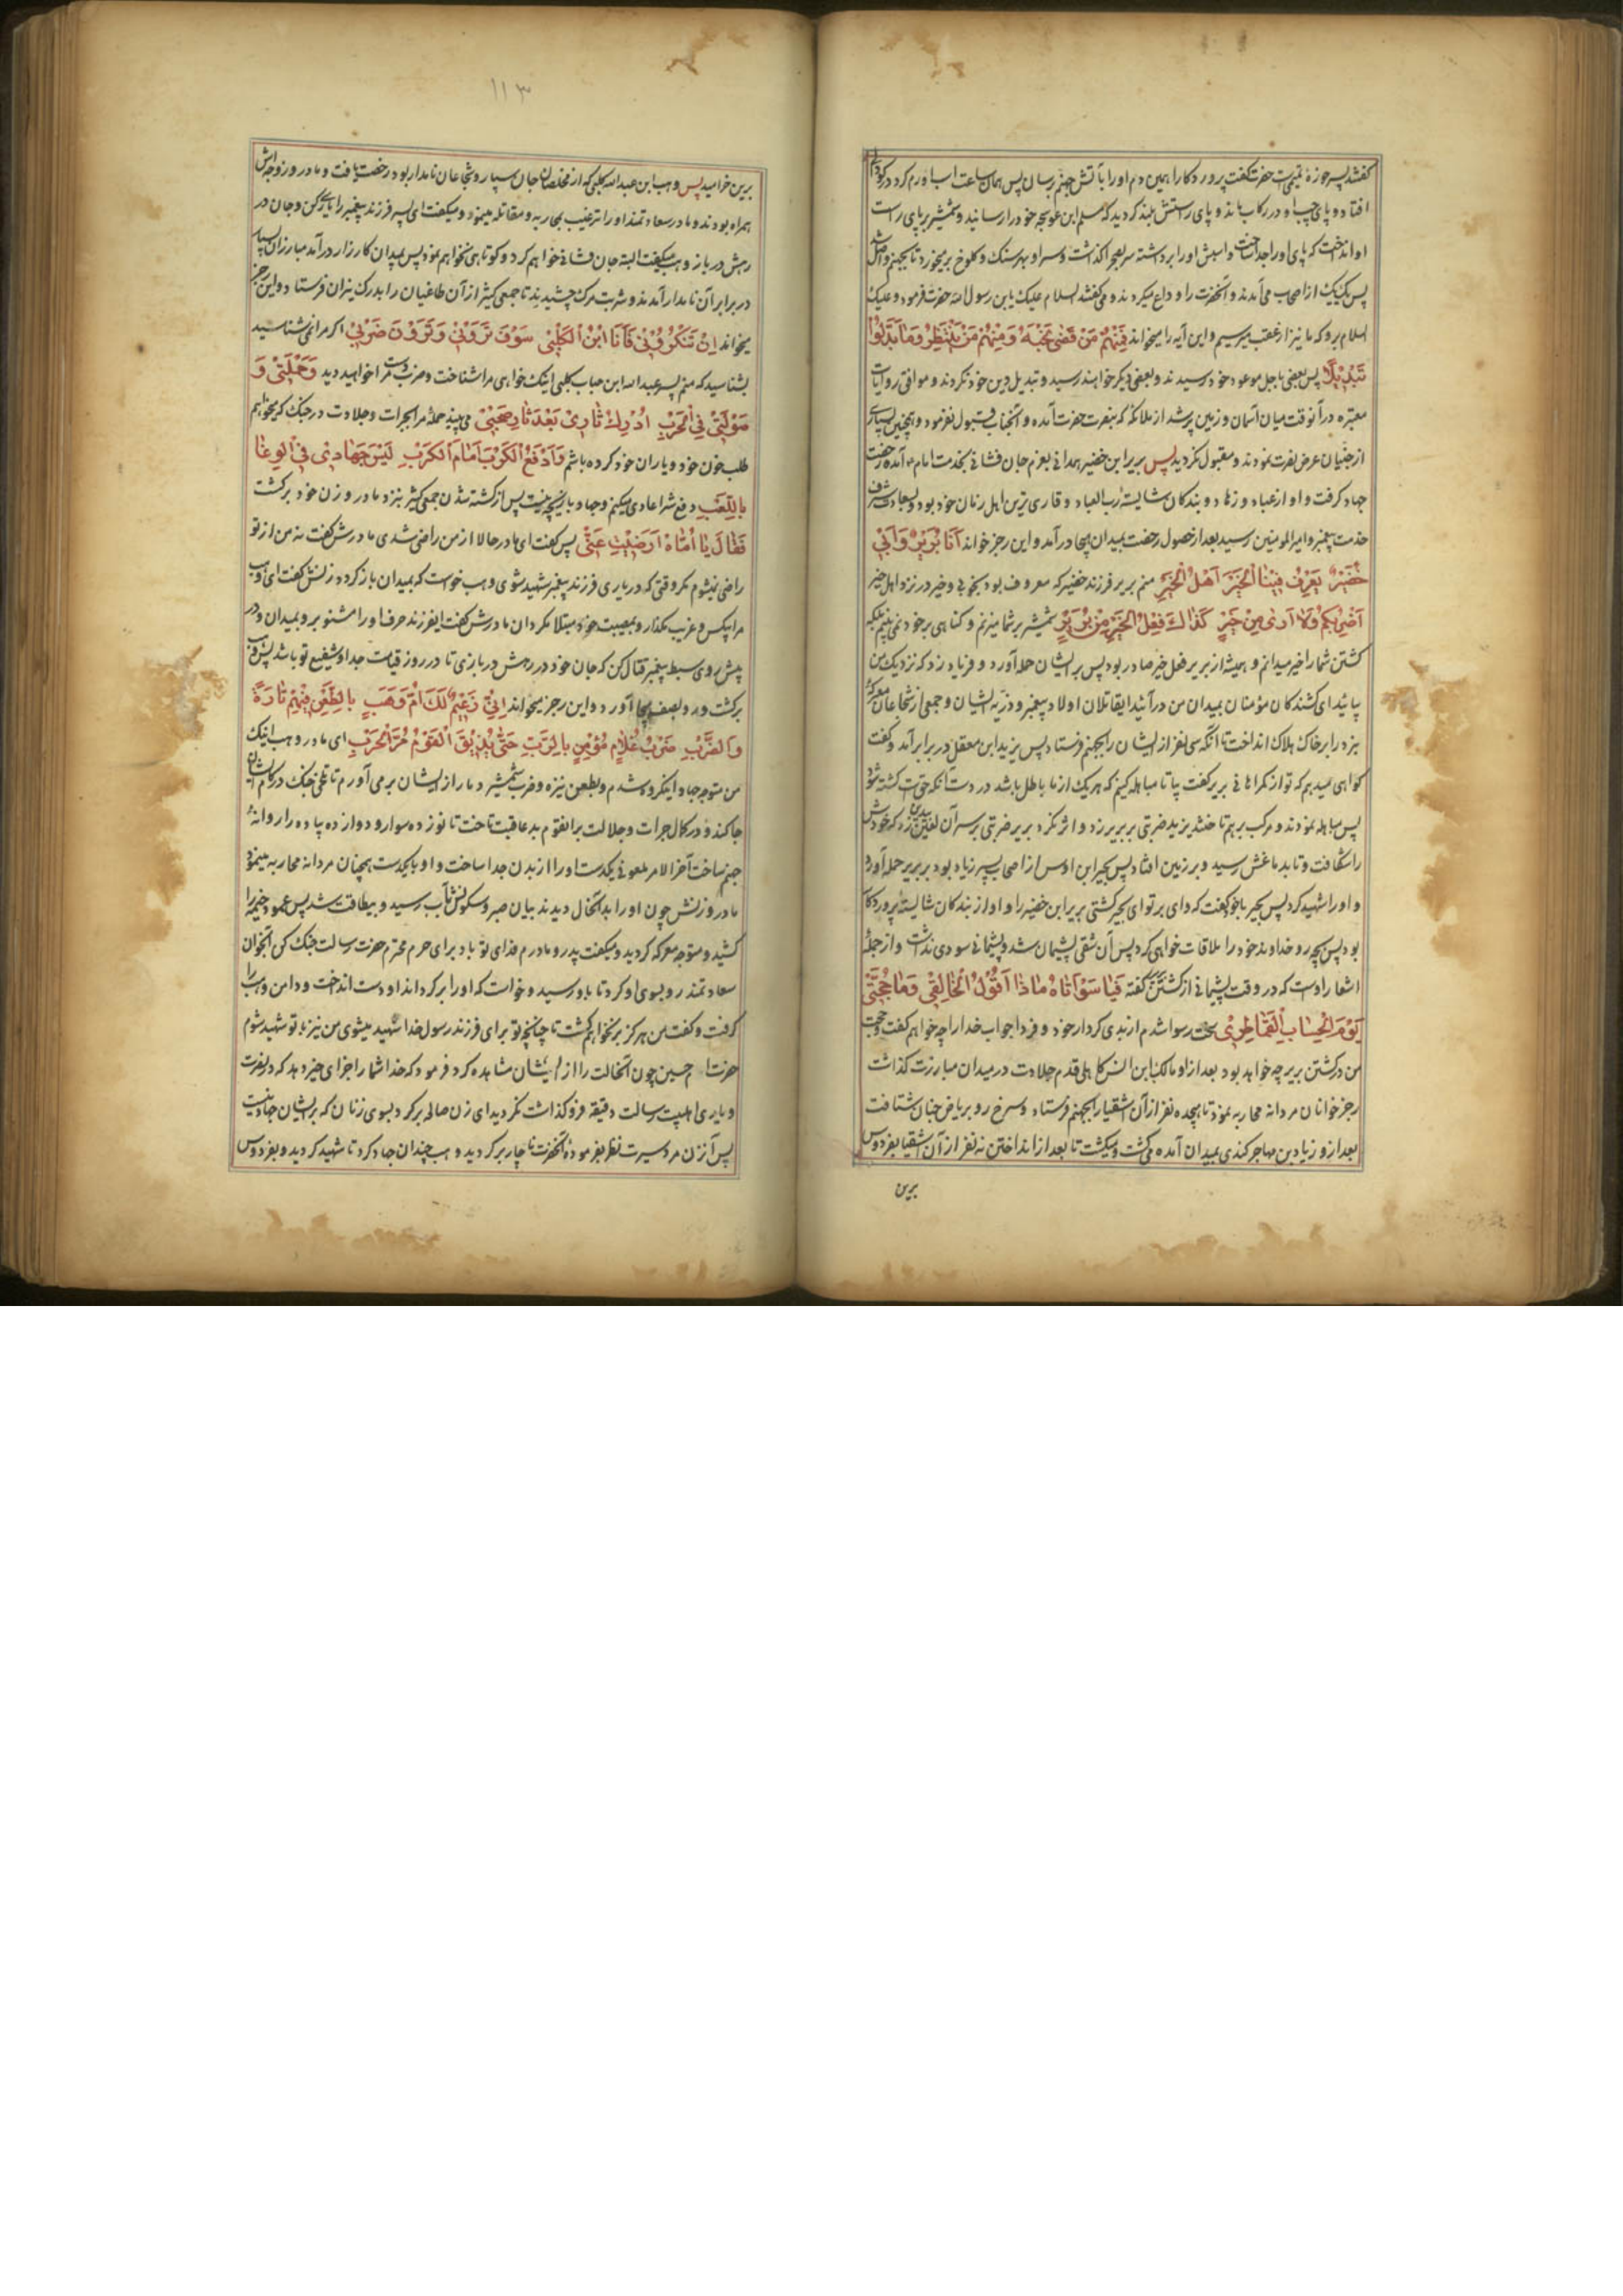 کفتند پسر حوزهٔ تمیمیست حضرت کفت پروردکارا همین دم اورا بآتش جهنم رسان پس همان ساعت اسب او رم کرد در کودال
افتاد و پای چپ او در رکاب ماند و پای راستش بلند کردید که مسلم ابن عوسجه خود را رسانید و شمشیر بر پای راست
او انداخت که پای او را جدا ساخت و اسبش او را برداشته سر بصحرا کذاشت و سر او بهر سنک و کلوخ بر میخورد تا بجهنم واصل شد
پس یک یک از اصحاب می آمدند و آنحضرت را وداع میکردند و می کفتند السلام علیک یا بن رسول الله حضرت فرمود و علیک
السلام برو که ما نیز از عقب میرسیم و این آیه را میخواند فَمِنْهُمْ مَنْ قَضىٰ نَحْبَهُ وَمِنْهُمْ مَنْ یَنْتَظِرُ وَمٰا بَدَّلُوا
تَبْدِیْلًا پس بعضی باجل موعود خود رسیدند و بعضی دیکر خواهند رسید و تبدیل دین خود نکردند و موافق روایات
معتبره در آنوقت میان آسمان و زمین پر شد از ملائکه که بنصرت حضرت آمده و آنجناب قبول نفرمود و همچنین بسیاری
از جنیان عرض نصرت نمودند و مقبول نکردید پس بریر ابن خضیر همدانی بعزم جان فشانی بخدمت امام آمده رخصت
جهاد کرفت و او از عباد و زهاد و بندکان شایسته رب العباد و قاری ترین اهل زمان خود بود و بسعادت شرف
خدمت پیغمبر و امیر المومنین رسید بعد از حصول رخصت بمیدان هیجا درآمد و این رجز خواند اَنَا بُرَیْرٌ وَ اَبِیْ
خُضَیْرٌ یَعْرِفُ فِیْنَا الْخَیْرَ اَهْلُ الْخَیْرِ منم بریر فرزند خضیر که معروف بود بخوبی و خیر در نزد اهل خیر
اَضْرِبُکُمْ وَلٰا اَرىٰ مِنْ خَیْرٍ کَذٰاكَ فِعْلُ الْخَیْرِ مِنْ بُرَیْرٍ شمشیر بر شما میزنم و کناهی بر خود نمی بینم بلکه
کشتن شما را خیر میدانم و همیشه از بریر فعل خیر صادر بود پس بر ایشان حمله آورد و فریاد زد که نزدیک من
بیائید ای کشندکان مؤمنان بمیدان من درآئید ایقاتلان اولاد پیغمبر و ذریه ایشان و جمعی از شجاعان معرکهٔ
نبرد را بر خاک هلاک انداخت تا آنکه سی نفر از ایشان را بجهنم فرستاد پس یزید ابن معقل در برابر آمد و کفت
کواهی میدهم که تو از کمراهانی بریر کفت بیا تا مباهله کنیم که هر یک از ما باطل باشد در دست آنکه حق است کشته شود
پس مباهله نمودند و مرکب بر هم تاختند یزید ضربتی ببریر زد و اثر نکرد بریر ضربتی بر سر آن لعین زد که خودش
را شکافت و تا بدماغش رسید و بر زمین افتاد پس بحیر ابن اوس از اصحاب پسر زیاد بود ببریر حمله آورد
و او را شهید کرد پس بحیر با خود کفت که وای بر تو ای بحیر کشتی بریر ابن خضیر را و او از بندکان شایسته پروردکار
بود پس بچه رو خداوند خود را ملاقات خواهی کرد پس آن شقی پشیمان شد و پشیمانی سودی نداشت و از جملهٔ
اشعار اوست که در وقت پشیمانی از کشتن کفته فَیٰا سَوْاَتٰاهُ مٰاذٰا اَقُوْلُ لِخٰالِقِیْ وَمٰا حُجَّتِیْ
یَوْمَ الْحِسٰابِ الْقَمٰاطِرِیْ سخت رسوا شدم از بدی کردار خود و فردا جواب خدا را چه خواهم کفت و حجت
من در کشتن بریر چه خواهد بود بعد از او مالک ابن انس کاهلی قدم جلادت در میدان مبارزت کذاشت
رجز خوانان مردانه محاربه نمود تا هیجده نفر از آن اشقیا را بجهنم فرستاد و سرخ رو بریاض جنان شتافت
بعد از و زیاد بن مهاجر کندی بمیدان آمده می کشت و میکشت تا بعد از انداختن نه نفر از آن اشقیا بفردوس
برین
۱۱۳
برین خرامید پس وهب ابن عبد الله کلبی که از مخلصان جان سپار و شجاعان نامدار بود رخصت یافت و مادر و زوجه اش
همراه بودند و مادر سعادتمند او را ترغیب بمحاربه و مقاتله مینمود و میکفت ای پسر فرزند پیغمبر را یاری کن و جان در
رهش در باز وهب میکفت البته جان فشانی خواهم کرد و کوتاهی نخواهم نمود پس بمیدان کارزار درآمد مبارزان بسیار
در برابر آن نامدار آمدند و شربت مرک چشیدند تا جمعی کثیر از آن طاغیان را بدرک نیران فرستاد و این رجز
میخواند اِنْ تَنْکُرُوْنِیْ فَاَنَا ابْنُ الْکَلْبِیْ سَوْفَ تَرَوْنِیْ وَتَرَوْنَ ضَرْبِیْ اکر مرا نمی شناسید
بشناسید که منم پسر عبد الله ابن حباب کلبی اینک خواهی مرا شناخت و ضرب دست مرا خواهید دید وَحَمْلَتِیْ وَ
صَوْلَتِیْ فِی الْحَرْبِ اُدْرِكُ ثٰارِیْ بَعْدَ ثٰارِ صَحْبِیْ می بینید حملهٔ مرا بجرات و جلادت در جنک که میخواهم
طلب خون خود و یاران خود کرده باشم وَاَدْفَعُ الْکَرْبَ اَمٰامَ الْکَرْبِ لَیْسَ جِهٰادِیْ فِی الْوَغٰا
بِاللَّعْبِ دفع شر اعادی میکنم و جهاد بازیچه نیست پس از کشته شدن جمعی کثیر بنزد مادر و زن خود برکشت
فَقٰالَ یٰا اُمّٰاهُ اَرَضِیْتِ عَنِّیْ پس کفت ای مادر حالا از من راضی شدی مادرش کفت نه من از تو
راضی نیشوم مکر وقتی که در یاری فرزند پیغمبر شهید شوی وهب خواست که بمیدان باز کردد زنش کفت ای وهب
مرا بیکس و غریب مکذار و بمصیبت خود مبتلا مکردان مادرش کفت ایفرزند حرف او را مشنو برو بمیدان و در
پیش روی سبط پیغمبر قتال کن که جان خود در رهش در بازی تا در روز قیامت جد او شفیع تو باشد پس وهب
برکشت و رو بصف هیجا آورد و این رجز میخواند اِنِّیْ زَعِیْمٌ لَكَ اُمَّ وَهَبٍ بِالطَّعْنِ فِیْهِمْ تٰارَةً
وَالضَّرْبِ ضَرْبُ غُلٰامٍ مُؤْمِنٍ بِالرَّبِّ حَتّٰى یُذِیْقَ الْقَوْمَ مُرَّ الْحَرْبِ ای مادر وهب اینک
من متوجه جهاد اینکروه شدم و بطعن نیزه و ضرب شمشیر دمار از ایشان بر می آورم تا تلخی جنک در کام ایشان
جا کند و در کمال جرات و جلالت بر آنقوم بد عاقبت تاخت تا نوزده سوار و دوازده پیاده را روانهٔ
جهنم ساخت آخر الامر ملعونی یکدست او را از بدن جدا ساخت و او بایکدست همچنان مردانه محاربه مینمود
مادر و زنش چون او را بدانحال دیدند بیان صبر و سکونش بآب رسید و بیطاقت شد پس عمود خیمه را
کشید و متوجه معرکه کردید و میکفت پدر و مادرم فدای تو باد برای حرم محترم حضرت رسالت جنک کن آنجوان
سعادتمند رو بسوی او کرد تا باو رسید و خواست که او را بر کرداند او دست انداخت و دامن وهب را
کرفت و کفت من هرکز بر نخواهم کشت تا چنانچه تو برای فرزند رسول خدا شهید میشوی من نیز با تو شهید شوم
حضرت امام حسین چون آنحالت را از ایشان مشاهده کرد فرمود که خدا شما را جزای خیر دهد که در نصرت
و یاری اهلبیت رسالت دقیقه فروکذاشت نکردید ای زن صالحه برکرد بسوی زنان که بر ایشان جهاد نیست
پس آن زن مرد سیرت نظر بفرمودهٔ آنحضرت ناچار برکردید و وهب چندان جهاد کرد تا شهید کردید و بفردوس